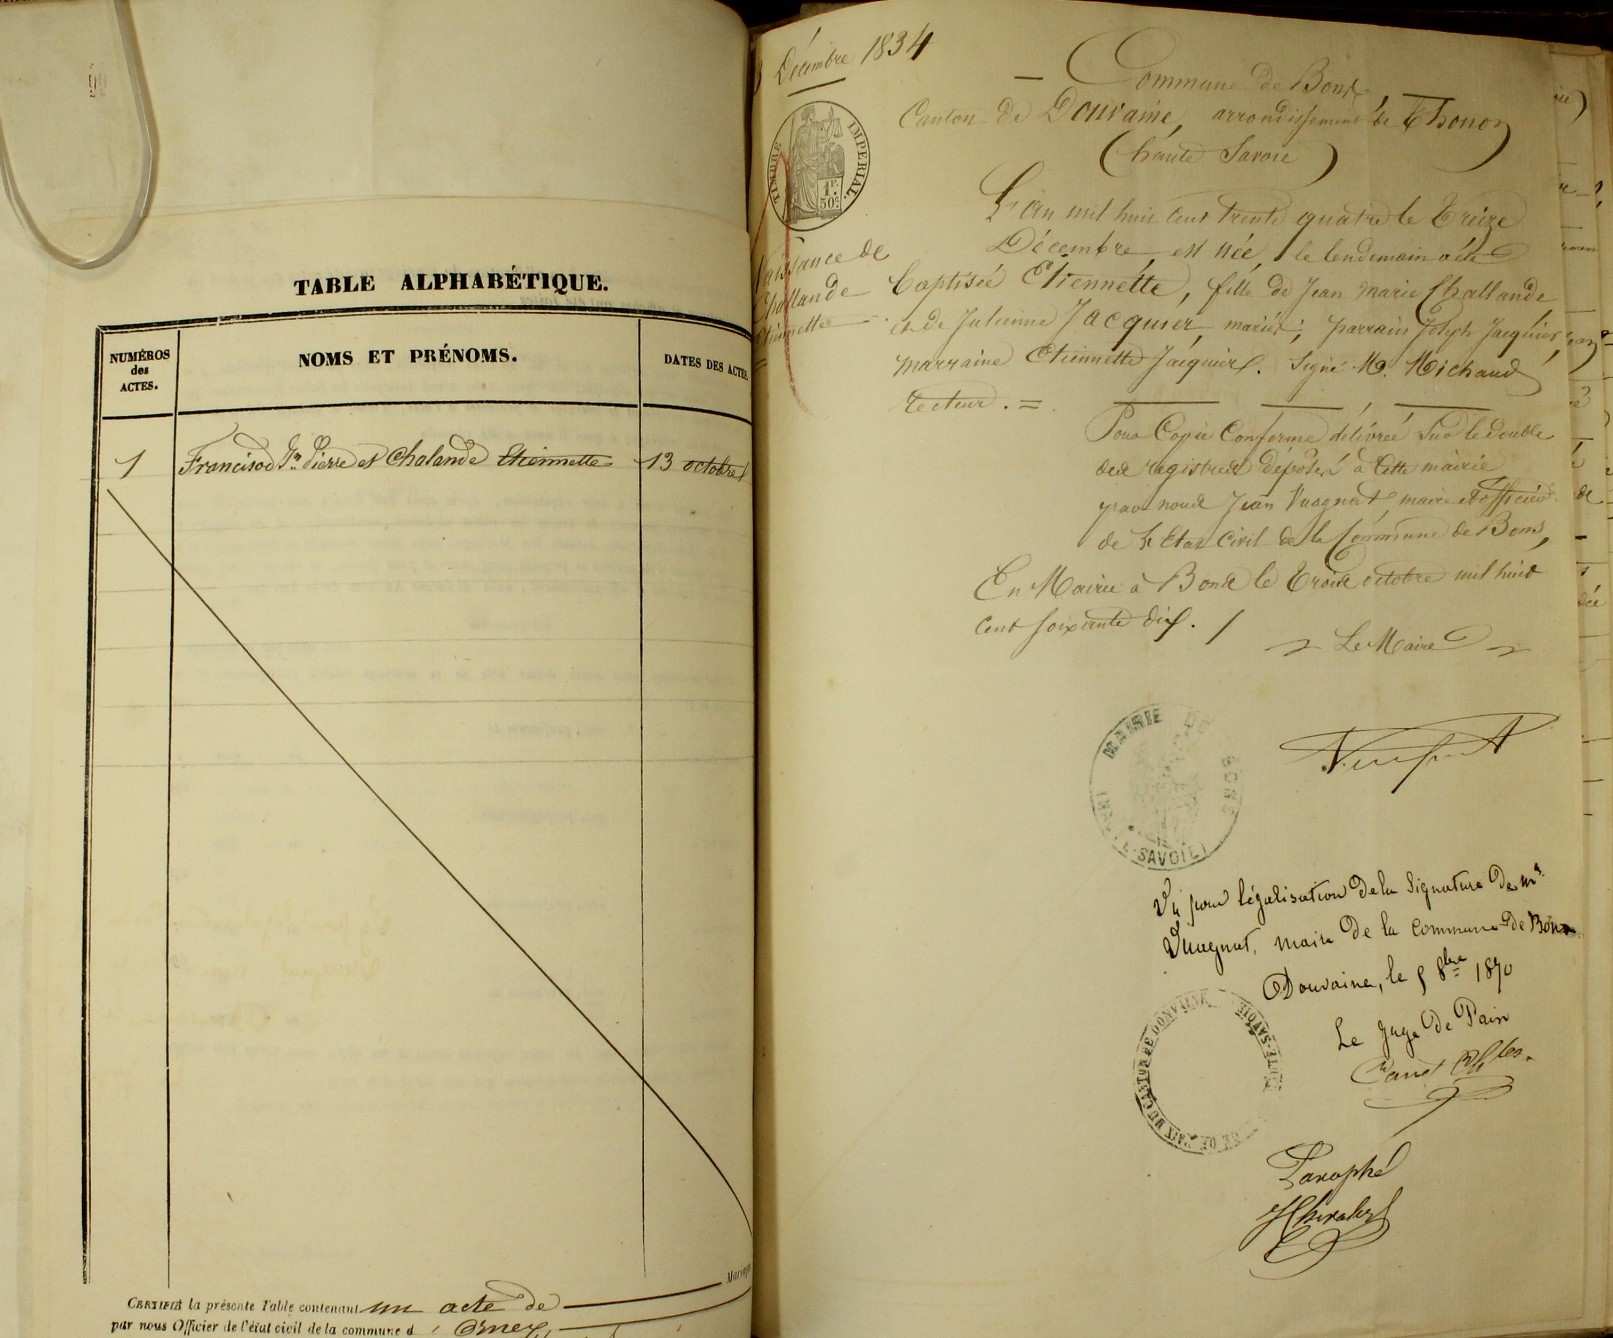 TABLE ALPHABÉTIQUE.
NUMÉROS des ACTES.
NOMS ET PRÉNOMS.
DATES DES ACTES.
1 Francisod Jn Pierre et Chalande Etiennette 13 octobre
CERTIFIÉ la présente Table contenant un acte de
par nous Officier de l'état civil de la commune d Ornex
Décembre 1834
TIMBRE IMPERIAL.
1F. 50c.
Naissance de
Challande
Etiennette
Commune de Bons
Canton de Douvaine, arrondissement de Thonon
(haute Savoie)
L'an mil huit cent trente quatre le treize
Décembre est née, le lendemain a été
baptisée Etiennette, fille de Jean Marie Challande
et de Julienne Jacquier mariés; parrain Joseph Jacquier,
marraine Etiennette Jacquier. Signé M. Michaud
recteur. =
Pour Copie Conforme délivrée sur le double
des registres déposé à cette mairie
par nous Jean Vuagnat, maire et officier
de l'Etat Civil de la Commune de Bons,
En Mairie à Bons le trois octobre mil huit
cent soixante dix. /
Le Maire
Vuagnat
MAIRIE DE BONS
SAVOIE)
Vu pour légalisation de la signature de mr
Vuagnat, maire de la commune de Bons
Douvaine, le 5 8bre 1870
Le Juge de Paix
DE PAIX DU CANTON DE DOUVAINE HAUTE-SAVOIE
Paraphé